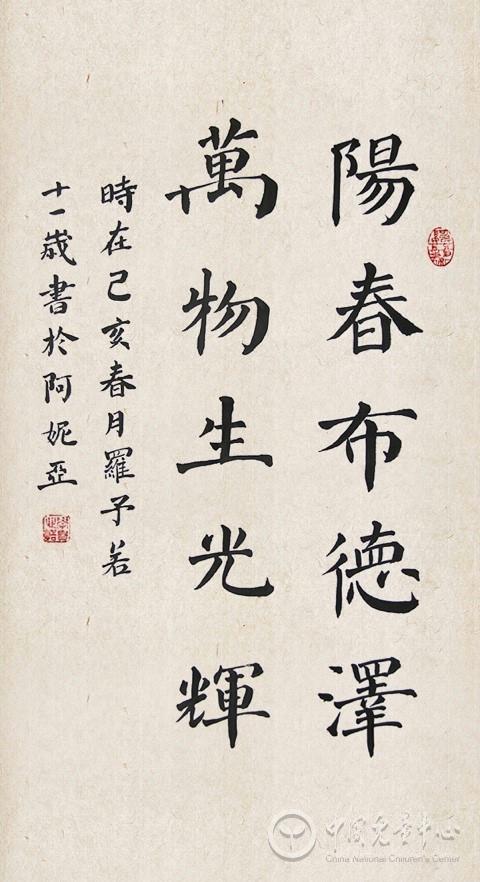 陽春布德澤
萬物生光輝
時在己亥春月羅予若
十一歲書於阿妮亞
中国儿童中心
China National Children's Center